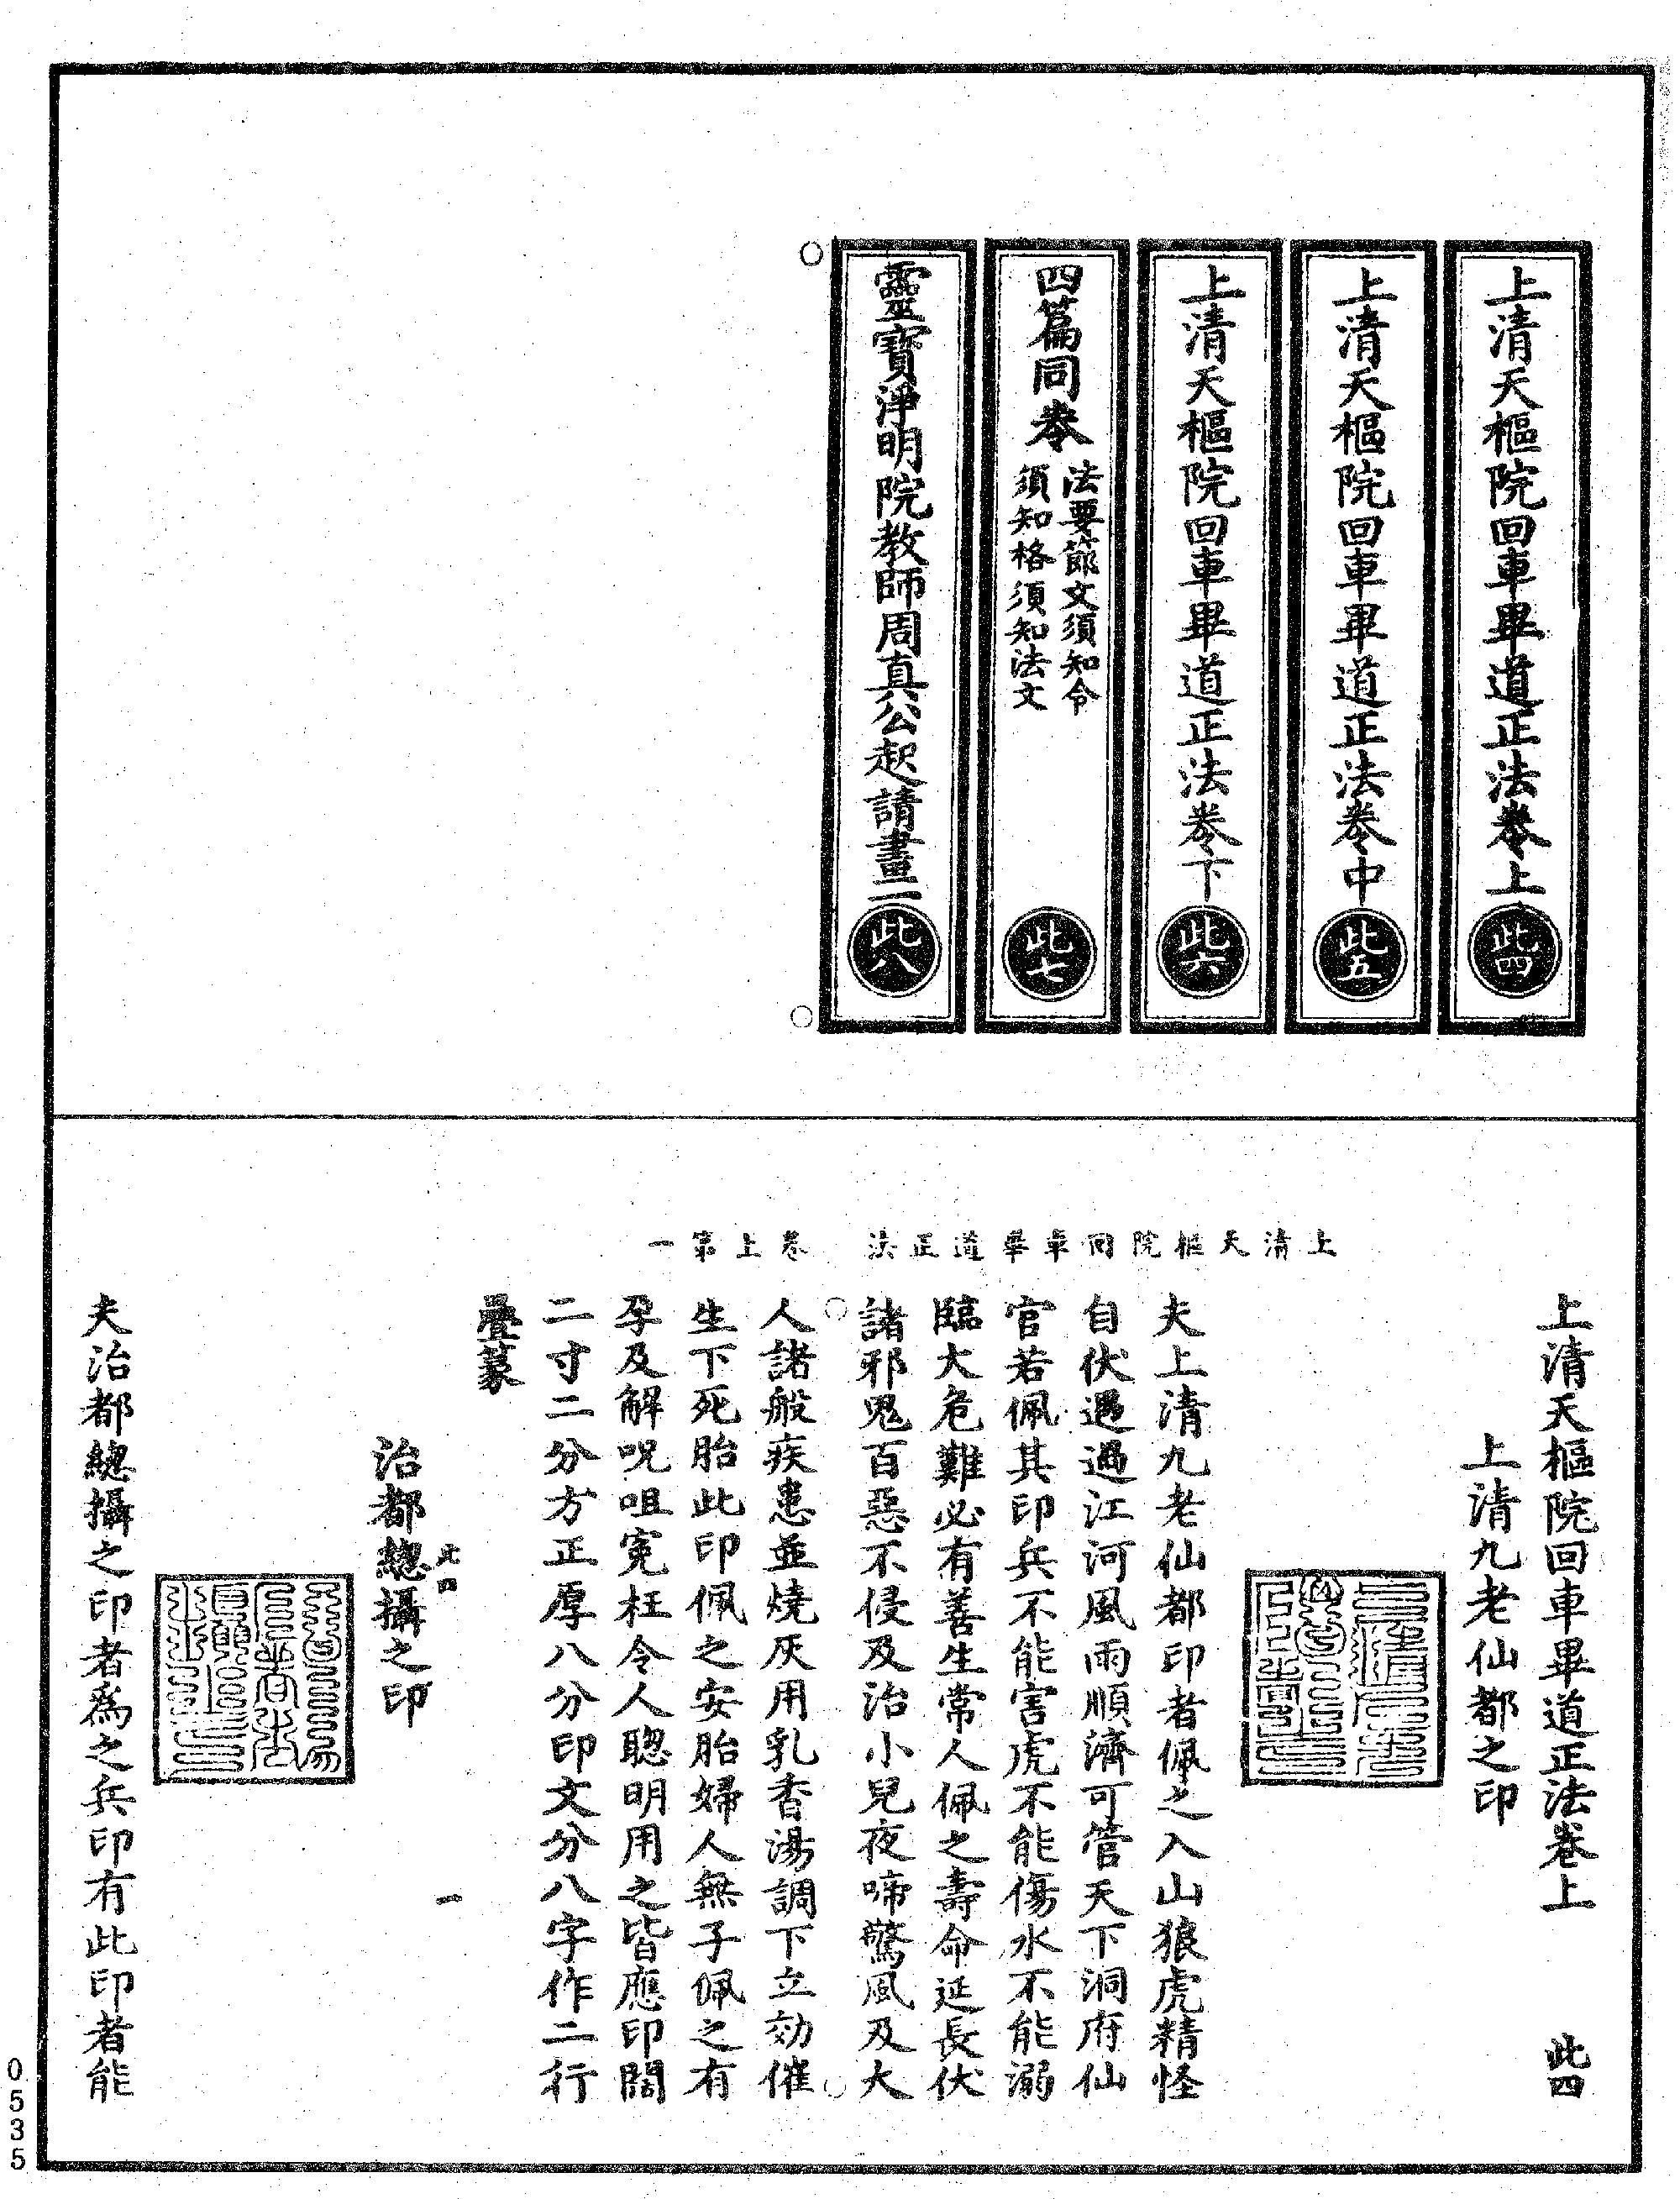 上清天樞院回車畢道正法卷上
此四
上清天樞院回車畢道正法卷中
此五
上清天樞院回車畢道正法卷下
此六
四篇同卷
法要節文須知令
須知格須知法文
此七
靈寶淨明院教師周真公起請畫一
此八
上清天樞院回車畢道正法　卷上第一
上清天樞院回車畢道正法卷上　此四
上清九老仙都之印
夫上清九老仙都印者佩之入山狼虎精怪
自伏遇過江河風雨順濟可管天下洞府仙
官若佩其印兵不能害虎不能傷水不能溺
臨大危難必有善生常人佩之壽命延長伏
諸邪鬼百惡不侵及治小兒夜啼驚風及大
人諸般疾患並燒灰用乳香湯調下立効催
生下死胎此印佩之安胎婦人無子佩之有
孕及解呪咀冤枉令人聰明用之皆應印闊
二寸二分方正厚八分印文分八字作二行
疊篆
此四　一
治都總攝之印
夫治都總攝之印者爲之兵印有此印者能
0535